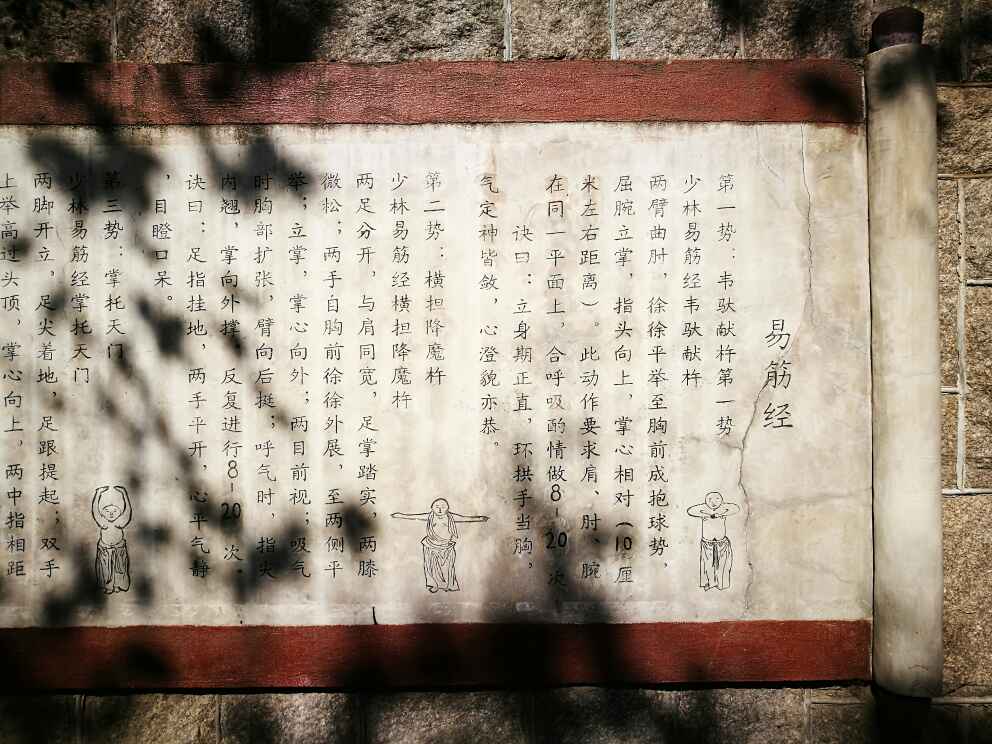 易筋经
第一势：韦驮献杵第一势
少林易筋经韦驮献杵
两臂曲肘，徐徐平举至胸前成抱球势，
屈腕立掌，指头向上，掌心相对（10厘
米左右距离）。此动作要求肩、肘、腕
在同一平面上，合呼吸酌情做8-20次
诀曰：立身期正直，环拱手当胸，
气定神皆敛，心澄貌亦恭。
第二势：横担降魔杵
少林易筋经横担降魔杵
两足分开，与肩同宽，足掌踏实，两膝
微松；两手自胸前徐徐外展，至两侧平
举；立掌，掌心向外；两目前视；吸气
时胸部扩张，臂向后挺；呼气时，指尖
内翘，掌向外撑。反复进行8-20次。
诀曰：足指挂地，两手平开，心平气静
，目瞪口呆。
第三势：掌托天门
少林易筋经掌托天门
两脚开立，足尖着地，足跟提起；双手
上举高过头顶，掌心向上，两中指相距